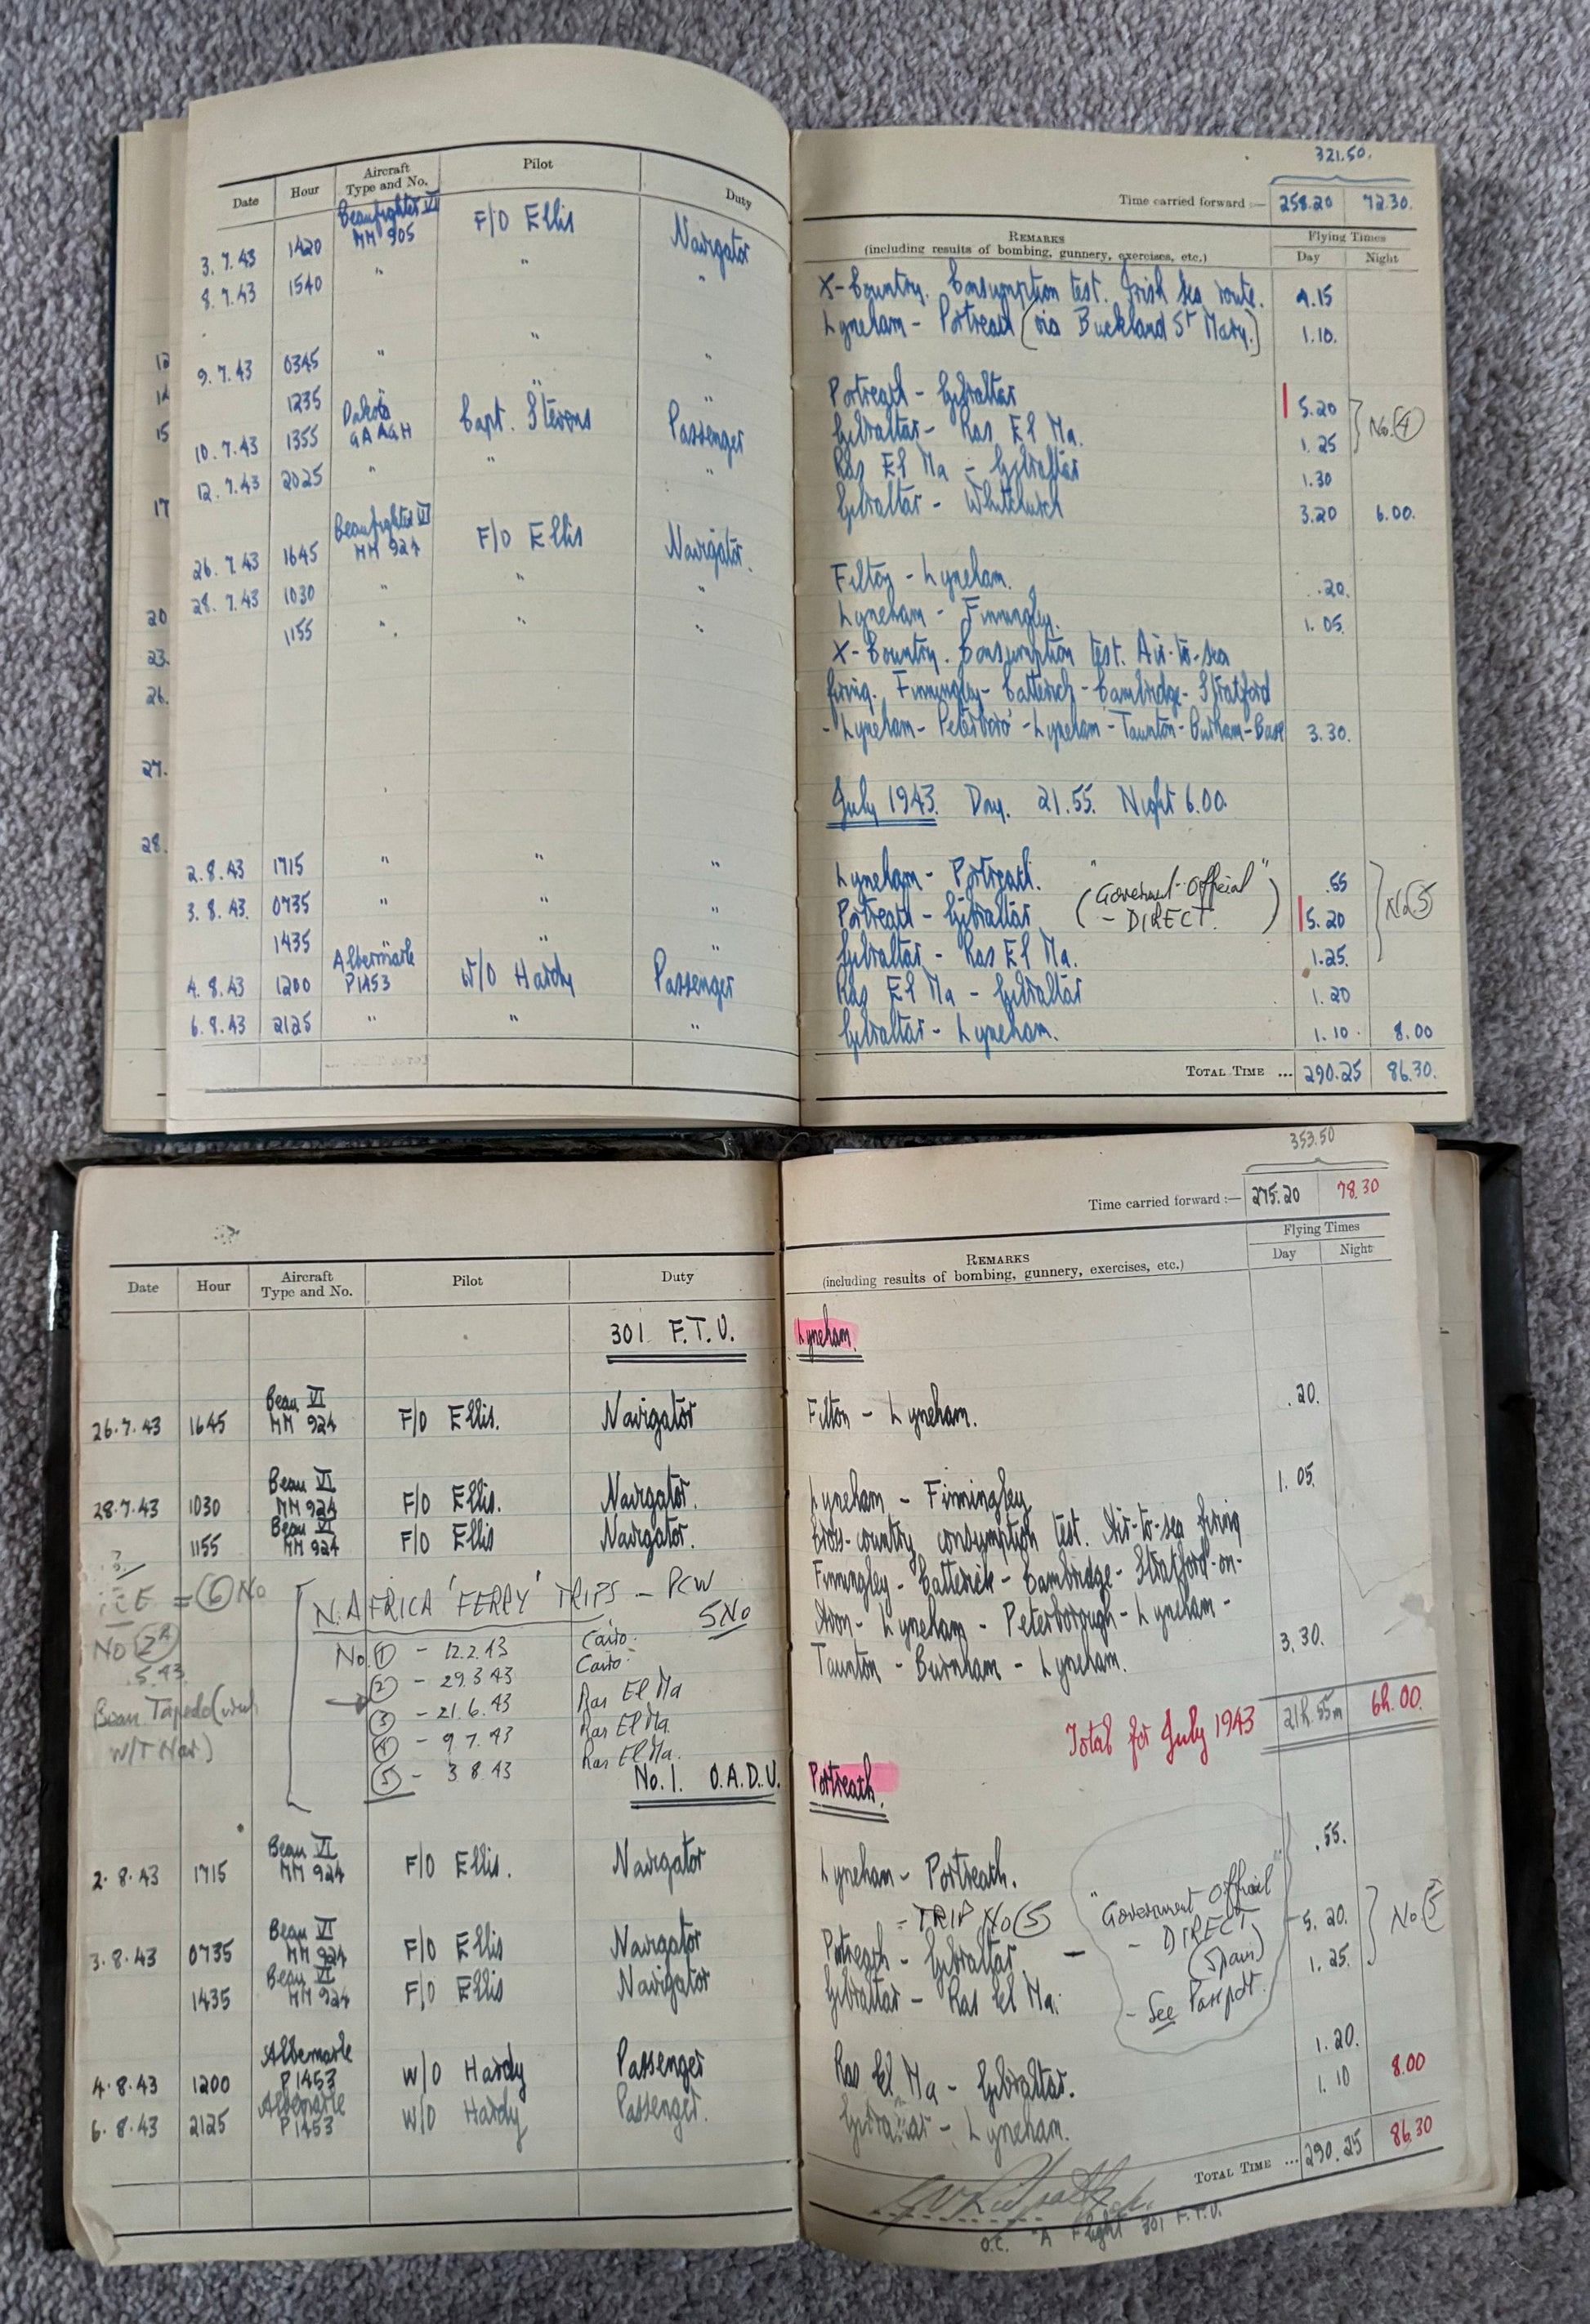 321.50.
Time carried forward :— 258.20 72.30.
Date Hour Aircraft Type and No. Pilot Duty
REMARKS (including results of bombing, gunnery, exercises, etc.) Flying Times Day Night
3.7.43 1420 Beaufighter VI MM 905 F/O Ellis Navigator X-Country. Consumption test. Irish Sea route. 4.15
8.7.43 1540 " " " Lyneham - Portreath (via Buckland St Mary.) 1.10.
9.7.43 0345 " " " Portreath - Gibraltar 5.20
1235 " " " Gibraltar - Ras El Ma. 1.25 No. (4)
10.7.43 1355 Dakota GAAGH Capt. Stevens Passenger Ras El Ma - Gibraltar 1.30
12.7.43 2025 " " " Gibraltar - Whitchurch 3.20 6.00.
26.7.43 1645 Beaufighter VI MM 924 F/O Ellis Navigator. Filton - Lyneham. .20.
28.7.43 1030 " " " Lyneham - Finningley. 1.05.
1155 " " " X-Country. Consumption test. Air-to-sea
firing. Finningley - Catterick - Cambridge - Stratford
- Lyneham - Peterboro' - Lyneham - Taunton - Burnham - Base 3.30.
July 1943. Day. 21.55. Night 6.00.
2.8.43 1715 " " " Lyneham - Portreath. .55
3.8.43. 0735 " " " Portreath - Gibraltar ("Government Official" - DIRECT.) 5.20 No. (5)
1435 " " " Gibraltar - Ras El Ma. 1.25.
4.8.43 1200 Albermarle P1453 W/O Hardy Passenger Ras El Ma - Gibraltar 1.20
6.8.43 2125 " " " Gibraltar - Lyneham. 1.10. 8.00
TOTAL TIME ... 290.25 86.30.
12
14
15
17
20
23.
26.
27.
28.
353.50
Time carried forward :— 275.20 78.30
Date Hour Aircraft Type and No. Pilot Duty
REMARKS (including results of bombing, gunnery, exercises, etc.) Flying Times Day Night
301 F.T.U. Lyneham.
26.7.43 1645 Beau VI MM 924 F/O Ellis. Navigator Filton - Lyneham. .20.
28.7.43 1030 Beau VI MM 924 F/O Ellis. Navigator. Lyneham - Finningley 1.05.
1155 Beau VI MM 924 F/O Ellis Navigator. Cross-country consumption test. Air-to-sea firing
Finningley - Catterick - Cambridge - Stratford-on-
Avon - Lyneham - Peterborough - Lyneham -
Taunton - Burnham - Lyneham. 3.30.
Total for July 1943 21h.55m 6h.00.
= (6) No
No (2A)
5.43
Beau
W/T Nav)
N. AFRICA 'FERRY' TRIPS - PCW
5 No
No. (1) - 12.2.43 Cairo.
(2) - 29.3.43 Cairo.
(3) - 21.6.43 Ras El Ma
(4) - 9 7.43 Ras El Ma.
(5) - 3 8.43 Ras El Ma.
No. 1. O.A.D.U. Portreath.
2.8.43 1715 Beau VI MM 924 F/O Ellis. Navigator Lyneham - Portreath. .55.
= TRIP No (5)
3.8.43 0735 Beau VI MM 924 F/O Ellis Navigator Portreath - Gibraltar - 5.20. No (5)
1435 Beau VI MM 924 F/O Ellis Navigator Gibraltar - Ras El Ma. 1.25.
"Government Official"
- DIRECT
(Spain)
- See Passport.
4.8.43 1200 Albemarle P1453 W/O Hardy Passenger Ras El Ma - Gibraltar. 1.20.
6.8.43 2125 Albemarle P1453 W/O Hardy Passenger. Gibraltar - Lyneham. 1.10 8.00
TOTAL TIME ... 290.25 86.30
O.C. "A" Flight 301 F.T.U.